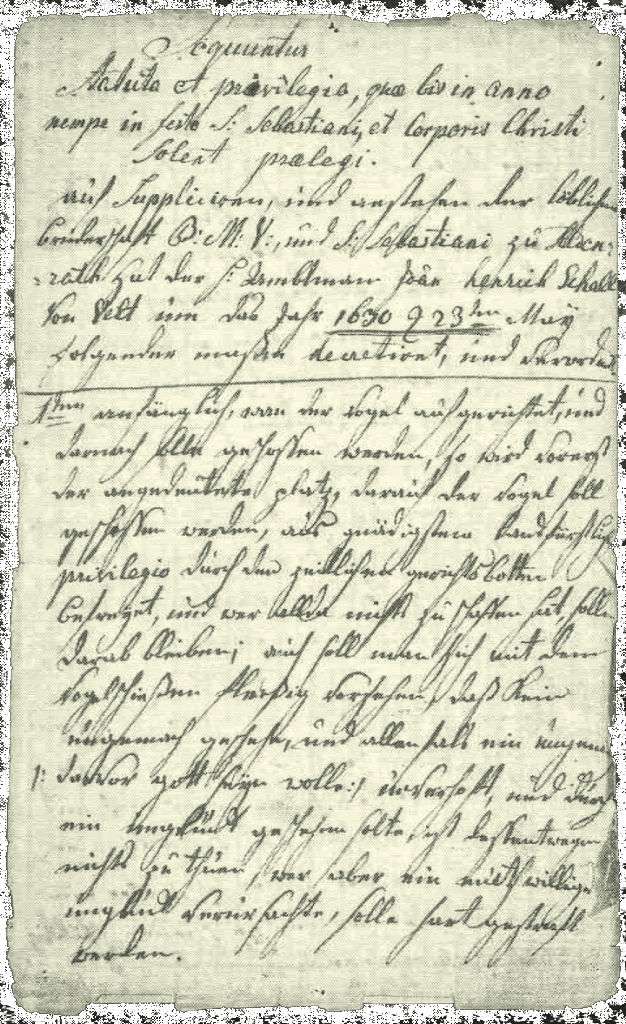 Sequuntur
Statuta et privilegia, quæ bis in anno
nempe in festo S: Sebastiani, et Corporis Christi
solent prælegi.
auf Suppliciren, und anstehen der löblichen
bruderschaft B: M: V:, und S: Sebastiani zu Alden-
-rath hat der H: Ambtman Joan Henrich Schall
von Bell um das Jahr 1630 d 23ten May
folgender maßen decretiret, und verordnet
1ten anfänglich, wan der vogel aufgerichtet, und
darnach solle geschossen werden, so wird vorerst
der angedeutete platz, darauf der vogel soll
geschossen werden, aus gnädigstem landfürstlich
privilegio durch den zeitlichen gerichtsbotten
befreyet, und wer allda nichts zu schaffen hat, solle
darab bleiben; auch soll man sich mit dem
vogelschießen fleißig vorsehen, daß kein
ungemach geschehe, und allenfals ein ungem
/: darvor gott seyn wolle:/ unverhoft, und durch
ein unglück geschehen solte, ist dessentwegen
nichts zu thuen, wer aber ein muthwilliges
unglück verursachte, solle hart gestraft
werden.